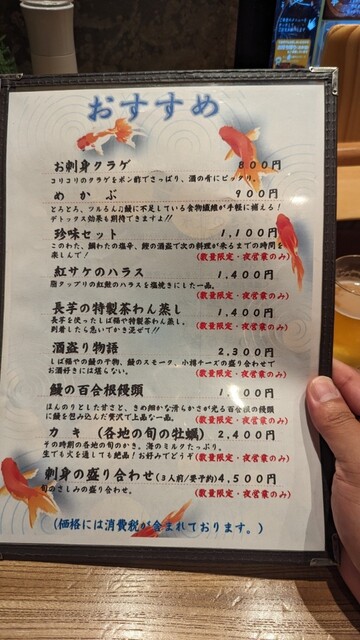 おすすめ
お刺身クラゲ 800円
コリコリのクラゲをポン酢でさっぱり、酒の肴にピッタリ。
めかぶ 900円
とろとろ、ツルるん♫鰻に不足している食物繊維が手軽に補える！
デトックス効果も期待できますよ!!
珍味セット 1,100円
このわた、鯛わたの塩辛、鰹の酒盗で次の料理が来るまでの時間を
楽しんで！ (数量限定・夜営業のみ)
紅サケのハラス 1,400円
脂タップリの紅鮭のハラスを塩焼きにした一品。
(数量限定・夜営業のみ)
長芋の特製茶わん蒸し 1,400円
長芋を使ったしば福や特製茶わん蒸し。
到着したら急いでかき混ぜて!! (数量限定・夜営業のみ)
酒盗り物語 2,300円
しば福やの鰻の干物、鰻のスモーク、小樽チーズの盛り合わせで
お酒好きには堪らない。 (数量限定・夜営業のみ)
鰻の百合根饅頭
ほんのりとした甘さと、きめ細かな滑らかさが光る百合根の饅頭
に鰻を包み込んだ贅沢で上品な一品。 (数量限定・夜営業のみ)
カキ (各地の旬の牡蠣) 2,400円
その時期の各地の旬のかき。海のミルクたっぷり。
生でも火を通しても絶品！お好みでどうぞ (数量限定・夜営業のみ)
刺身の盛り合わせ(3人前/要予約)4,500円
旬のさしみの盛り合わせ。 (数量限定・夜営業のみ)
(価格には消費税が含まれております。)